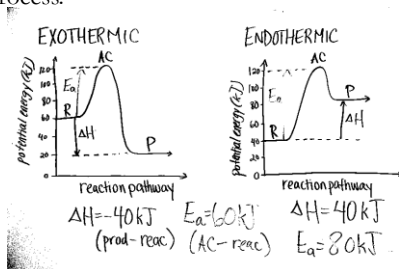 rocess.
EXOTHERMIC
potential energy (kJ)
120
100
80
60
40
20
0
Ea
AC
R
ΔH
P
reaction pathway
ΔH=-40kJ
(prod-reac)
Ea=60kJ
(AC-reac)
ENDOTHERMIC
potential energy (kJ)
120
100
80
60
40
20
0
Ea
AC
R
P
ΔH
reaction pathway
ΔH=40kJ
Ea=80kJ